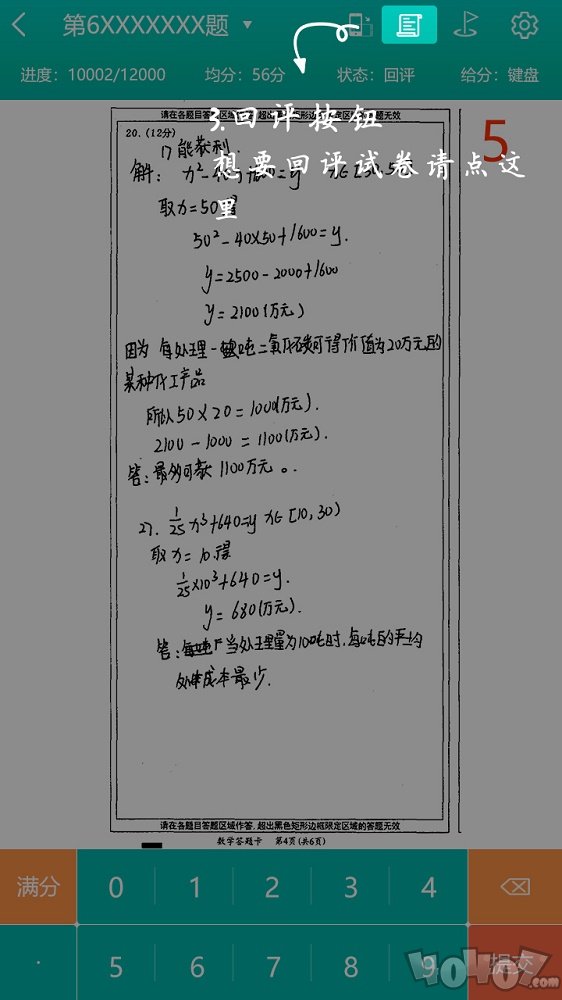 第6XXXXXXX题
进度：10002/12000 均分：56分 状态：回评 给分：键盘
请在各题目答题区域作答，超出黑色矩形边框限定区域的答题无效
3.回评按钮
想要回评试卷请点这
里
5
20.（12分）
能获利.
解：
取x=50得
50²-40×50+1600=y.
y=2500-2000+1600
y=2100(万元)
因为 每处理一吨二氧化碳可得价值为20万元的
某种化工产品
所以50×20=1000(万元).
2100-1000=1100(万元).
答：最多可获1100万元。
27. 1/25 x³+640=y x∈[10,30)
取x=10得
1/25×10³+640=y.
y=680(万元).
答：当处理量为100吨时,每吨的平均
处理成本最少.
请在各题目答题区域作答，超出黑色矩形边框限定区域的答题无效
数学答题卡 第4页(共6页)
满分 0 1 2 3 4
. 5 6 7 8 9 提交
40407.com